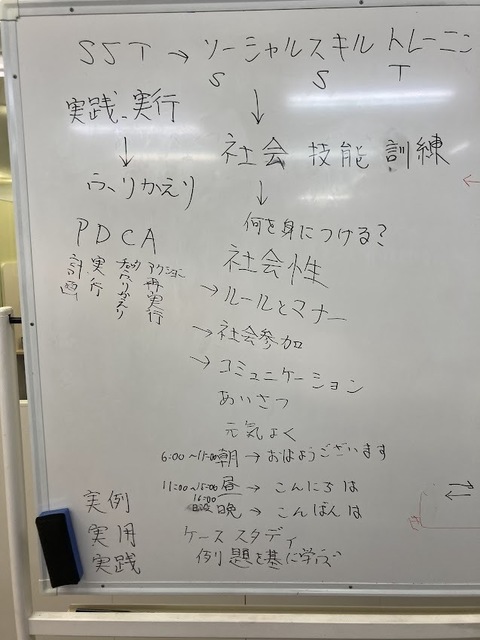 SST → ソーシャルスキル トレーニン
S S T
実践、実行
↓
ふりかえり
↓
社会 技能 訓練
↓
何を身につける?
PDCA
計画
実行
チェックふりかえり
アクション再実行
社会性
→ ルールとマナー
→ 社会参加
→ コミュニケーション
あいさつ
元気よく
6:00~11:00 朝 → おはようございます
11:00~16:00 昼 → こんにちは
16:00
晩 → こんばんは
実例
実用
実践
ケーススタディ
例題を基に学ぶ